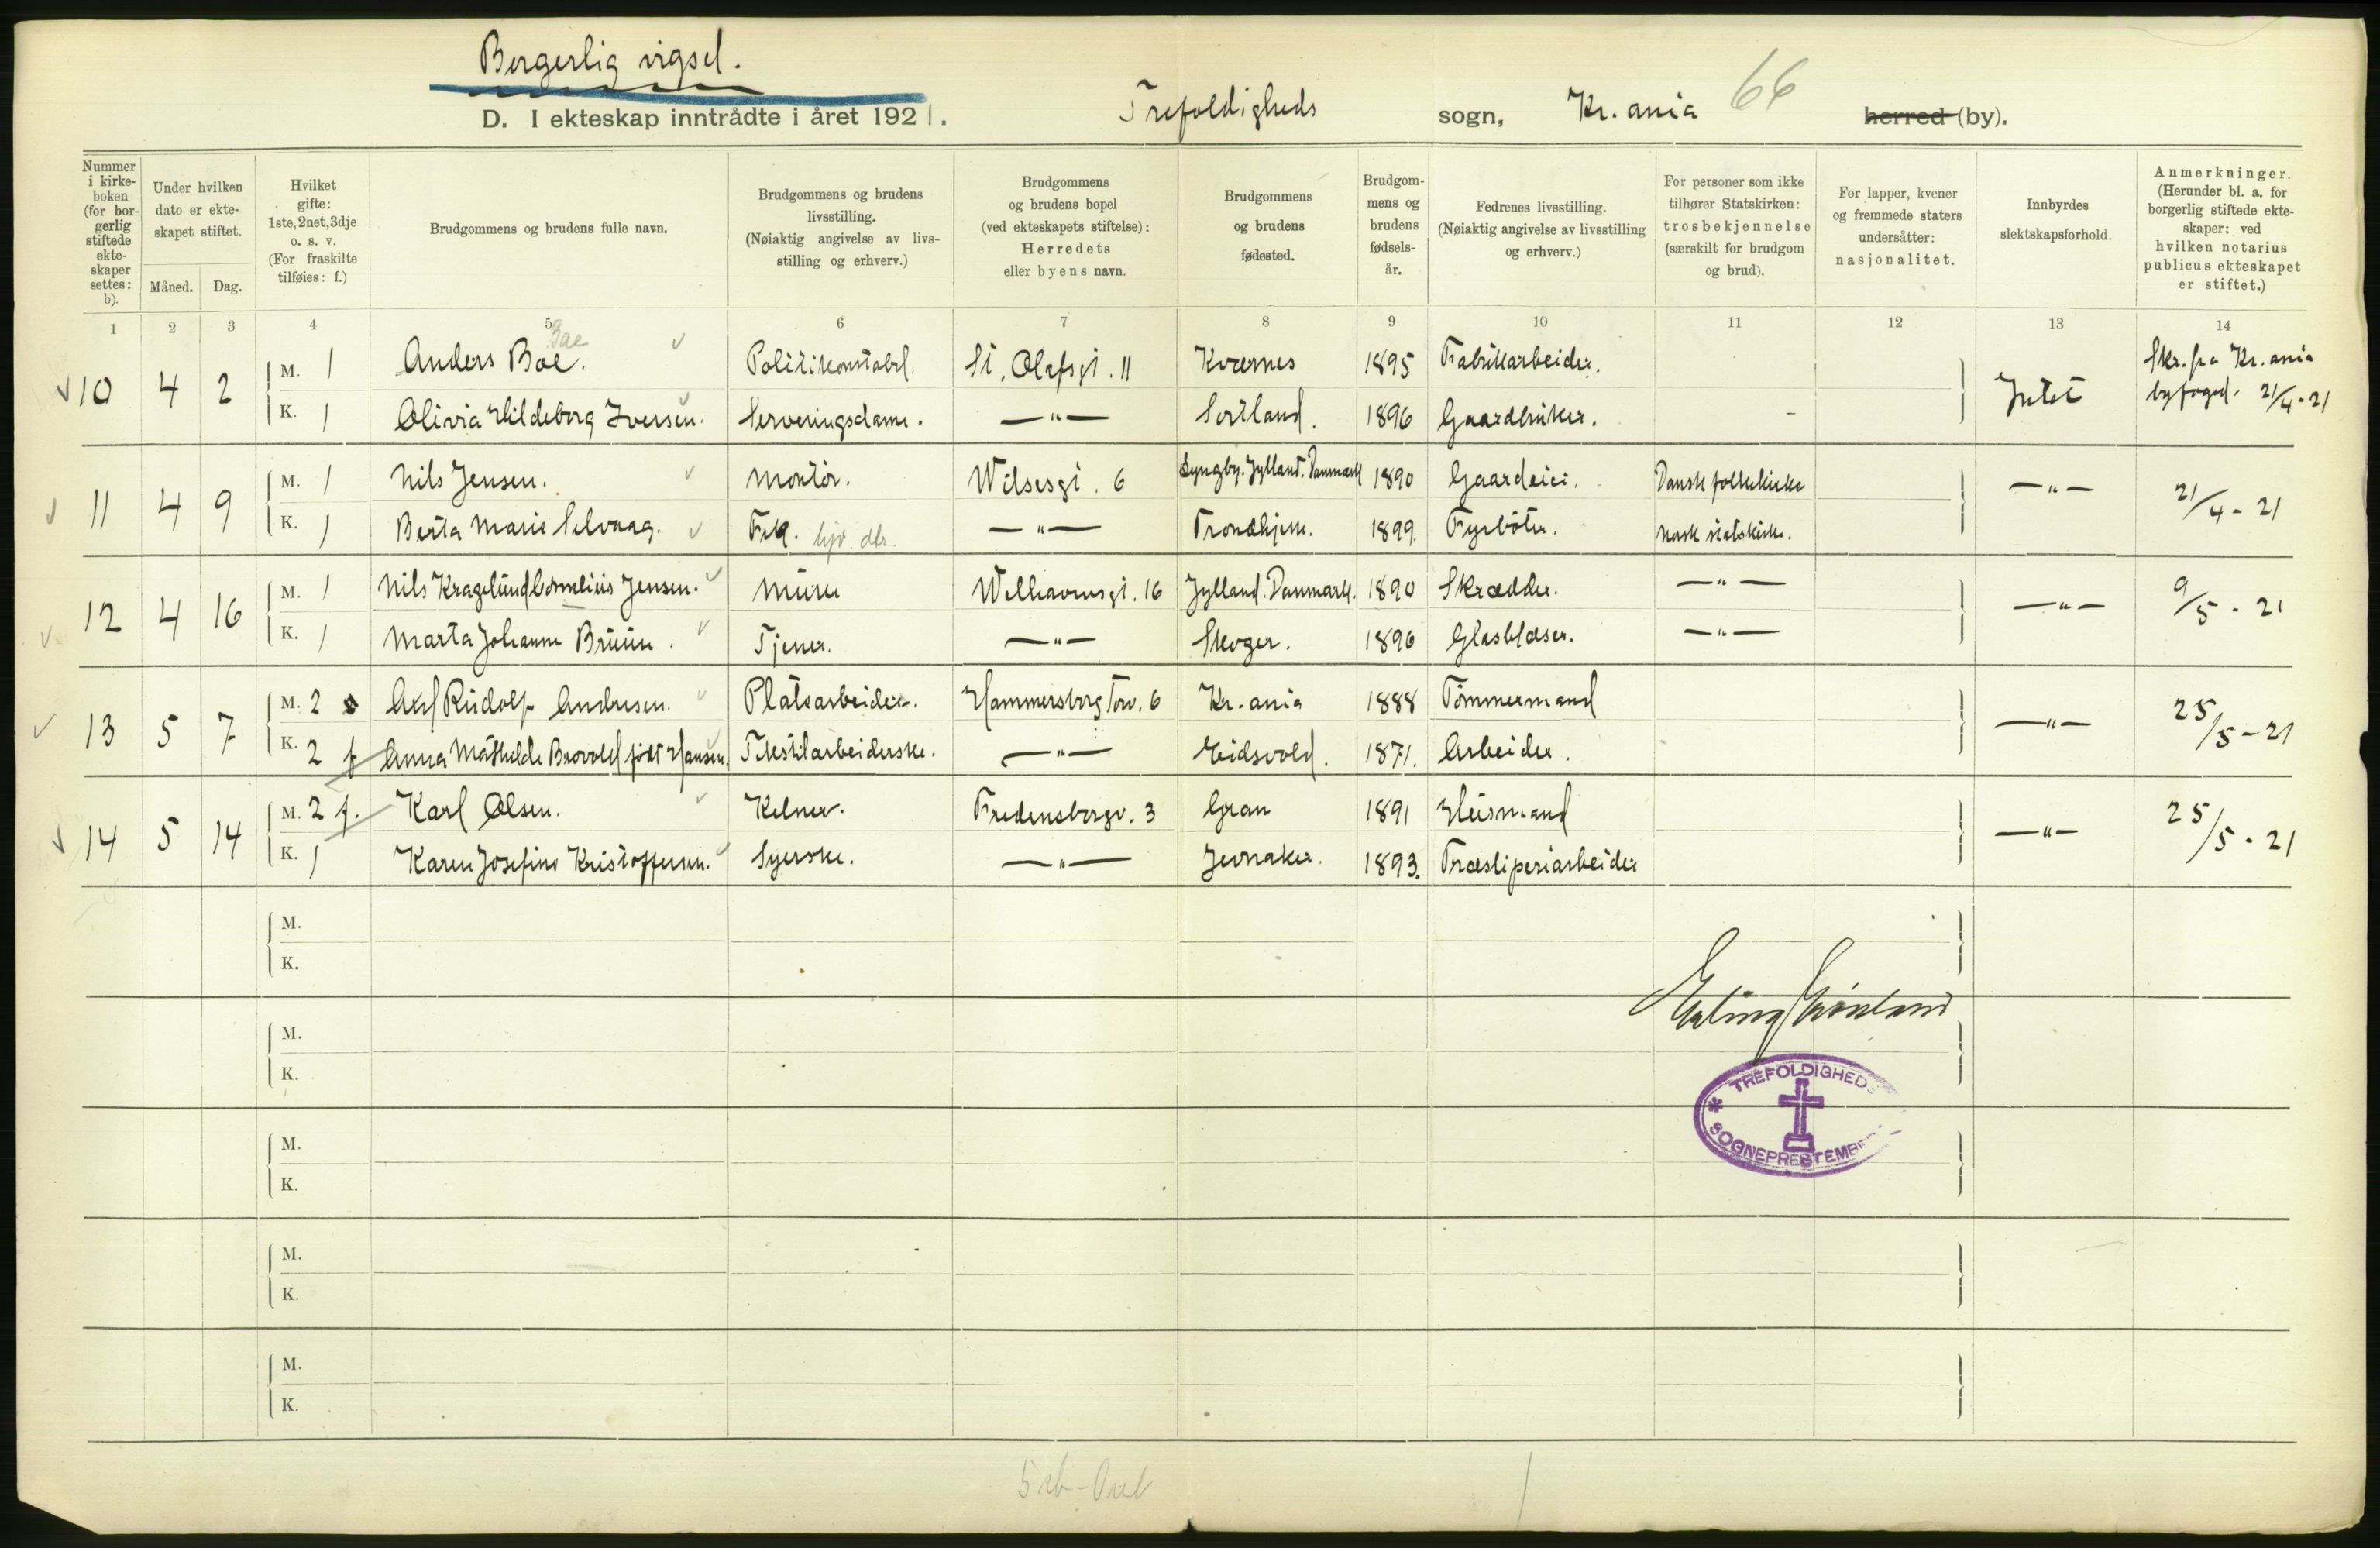 Borgerlig vigsel.
D. I ekteskap inntrådte i året 1921. Trefoldigheds sogn, Kr.ania 66 herred (by).
Nummer i kirke-boken (for bor-gerlig stiftede ekte-skaper settes: b).
Under hvilken dato er ekte-skapet stiftet.
Måned. Dag.
Hvilket gifte: 1ste, 2net, 3dje o. s. v. (For fraskilte tilføies: f.)
Brudgommens og brudens fulle navn.
Brudgommens og brudens livsstilling. (Nøiaktig angivelse av livs-stilling og erhverv.)
Brudgommens og brudens bopel (ved ekteskapets stiftelse): Herredets eller byens navn.
Brudgommens og brudens fødested.
Brudgom-mens og brudens fødsels-år.
Fedrenes livsstilling. (Nøiaktig angivelse av livsstilling og erhverv.)
For personer som ikke tilhører Statskirken: trosbekjennelse (særskilt for brudgom og brud).
For lapper, kvener og fremmede staters undersåtter: nasjonalitet.
Innbyrdes slektskapsforhold.
Anmerkninger. (Herunder bl. a. for borgerlig stiftede ekte-skaper: ved hvilken notarius publicus ekteskapet er stiftet.)
1 2 3 4 5 6 7 8 9 10 11 12 13 14
10 4 2 M. 1 Anders Boe. Bae Politikonstabel. St. Olafsgt. 11 Kvernes 1895 Fabrikarbeider. Intet Skr. fra Kr.ania byfoged. 21/4-21
K. 1 Olivia Hildeborg Iversen. Serveringsdame. —"— Sortland. 1896 Gaardbruker. -
11 4 9 M. 1 Nils Jensen. Montör. Wilsesgt. 6 Lyngby. Jylland. Danmark 1890 Gaardeier. Dansk folkekirke —"— 21/4-21
K. 1 Berta Marie Selvaag. Frk. —"— Trondhjem. 1899. Fyrböter. Norsk statskirke.
12 4 16 M. 1 Nils Kragelund Cornelius Jensen. Murer Welhavensgt. 16 Jylland. Danmark. 1890 Skrædder. —"— —"— 9/5-21
K. 1 Marta Johanne Bruun. Tjener. —"— Skoger. 1896 Glasblæser. —"—
13 5 7 M. 2 Axel Rudolf Andresen. Platsarbeider. Hammersborg Torv. 6 Kr.ania 1888 Tömmermand —"— 25/5-21
K. 2 f Anna Mathilde Brovold født Hansen. Tekstilarbeiderske. —"— Eidsvold. 1871. Arbeider.
14 5 14 M. 2 f. Karl Olsen. Kelner. Fredensborgv. 3 Gran 1891 Husmand —"— 25/5-21
K. 1 Karen Josefine Kristoffersen. Syerske. —"— Jevnaker. 1893. Træsliperiarbeider
M.
K.
M.
K.
M.
K.
M.
K.
M.
K.
Erling Grönland
TREFOLDIGHEDS
SOGNEPRESTEMB